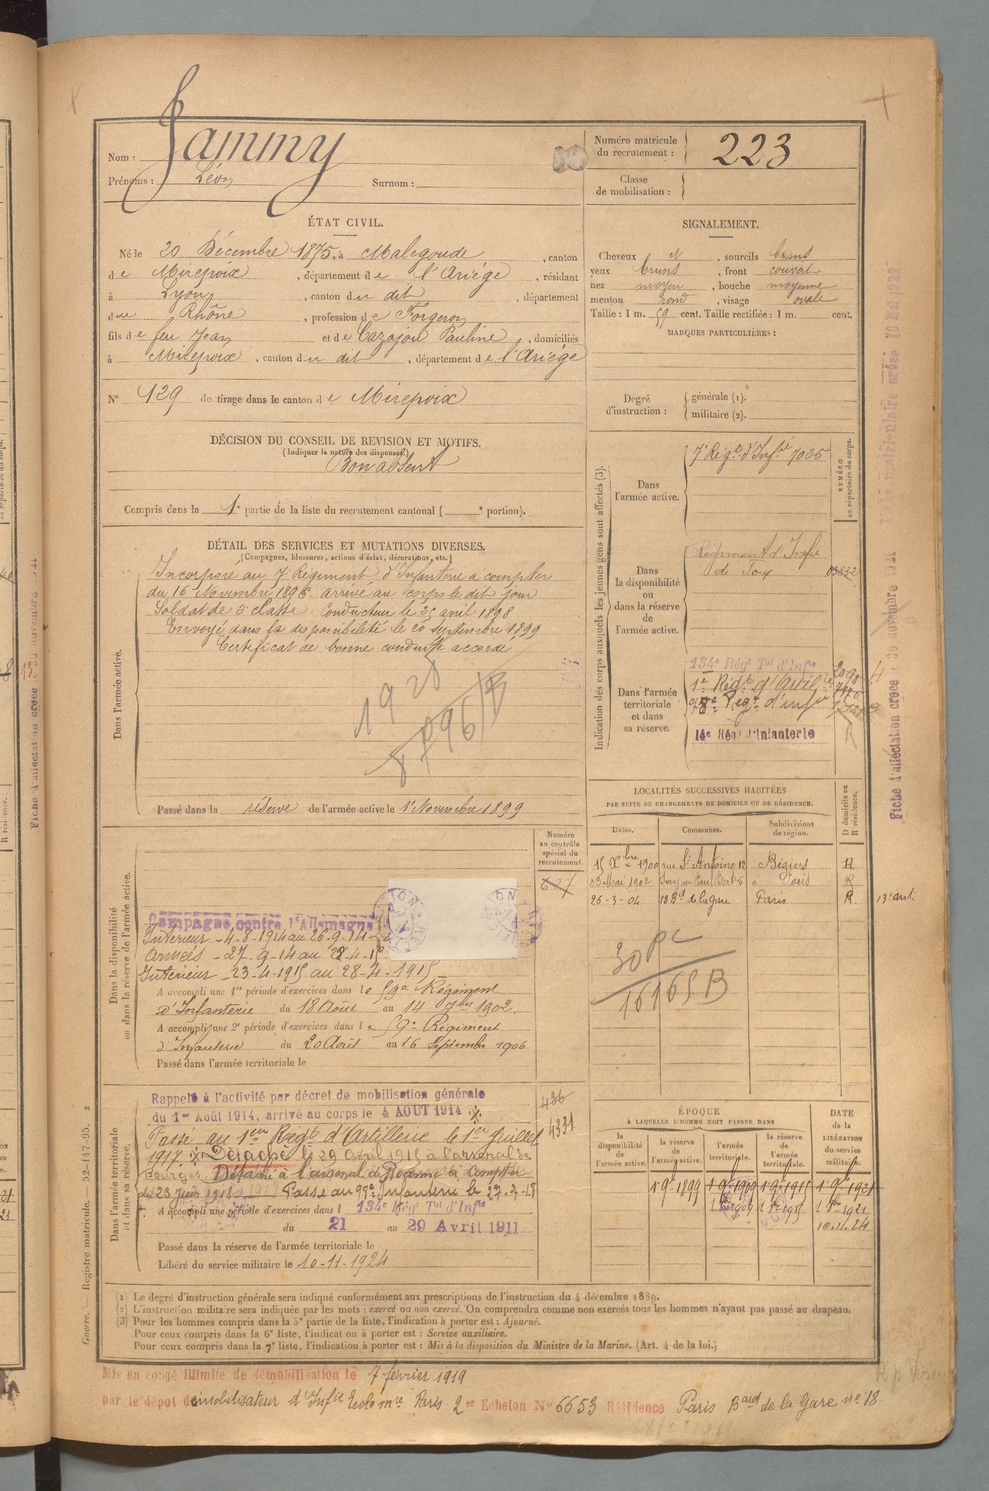 Nom : Jammy
Prénoms : Léon Surnom :
Numéro matricule du recrutement : 223
Classe de mobilisation :
ÉTAT CIVIL.
Né le 20 Décembre 1875, à Malegoude, canton
de Mirepoix, département de l'Ariège, résidant
à Lyon, canton du dit, département
du Rhône, profession de Forgeron
fils de feu Jean et de Cazajou Pauline, domiciliés
à Mirepoix, canton du dit, département de l'Ariège
N° 129 de tirage dans le canton de Mirepoix
SIGNALEMENT.
Cheveux et, sourcils bruns
yeux bruns, front couvert
nez moyen, bouche moyenne
menton rond, visage ovale
Taille : 1 m. 59 cent. Taille rectifiée : 1 m. cent.
MARQUES PARTICULIÈRES :
Degré d'instruction : générale (1). militaire (2).
DÉCISION DU CONSEIL DE REVISION ET MOTIFS.
(Indiquer la nature des dispenses.)
Bon absent
Compris dans la 1e partie de la liste du recrutement cantonal ( e portion).
DÉTAIL DES SERVICES ET MUTATIONS DIVERSES.
(Campagnes, blessures, actions d'éclat, décorations, etc.)
Dans l'armée active.
Incorporé au 7e Régiment d'Infanterie à compter
du 16 Novembre 1896 arrivé au corps le dit jour
Soldat de 2e classe. Conducteur le 25 avril 1898
Envoyé dans la disponibilité le 20 septembre 1899
Certificat de bonne conduite accordé
1928
8896/B
Passé dans la réserve de l'armée active le 1er Novembre 1899
Indication des corps auxquels les jeunes gens sont affectés (3).
NUMÉRO au répertoire du corps.
Dans l'armée active.
7e Régt d'Infie 7025
Dans la disponibilité ou dans la réserve de l'armée active.
Régiment d'Infie
de Foix
Dans l'armée territoriale et dans sa réserve.
134e Régt Tal d'Infie
1er Régt d'Artil
Régt d'infie
14e Régt d'Infanterie
LOCALITÉS SUCCESSIVES HABITÉES
PAR SUITE DE CHANGEMENTS DE DOMICILE OU DE RÉSIDENCE.
Dates. Communes. Subdivisions de région. D domicile ou R résidence.
15 Xbre 1900 rue St Antoine 12 Béziers
23 Mai 1902 Paris R
26-3-04 18 Bd de la gare Paris R.
30 PC
16165 B
Numéro au contrôle spécial du recrutement.
Dans la disponibilité ou dans la réserve de l'armée active.
Campagne contre l'Allemagne
Intérieur - 4-8-1914 au 26-9-14
Armées - 27-9-14 au 22-4-15
Intérieur - 23-4-1915 au 28-4-1915
A accompli une 1re période d'exercices dans le 59e Régiment
d'Infanterie du 18 Août au 14 7bre 1902.
A accompli une 2e période d'exercices dans le 59e Régiment
d'Infanterie du 20 Août au 16 Septembre 1906
Passé dans l'armée territoriale le
Dans l'armée territoriale et dans sa réserve.
Rappelé à l'activité par décret de mobilisation générale
du 1er Août 1914, arrivé au corps le 4 AOUT 1914
Passé au 1er Régt d'Artillerie le 1er Juillet
1917 Détaché le 29 Avril 1915 à l'arsenal de
Bourges. Détaché à l'arsenal de Roanne à compter
du 23 juin 1918 Passé au 99e Infanterie le
A accompli une période d'exercices dans le 134e Régt Tal d'Infie
du 21 au 29 Avril 1911
Passé dans la réserve de l'armée territoriale le
Libéré du service militaire le 10-11-1924
436
4331
ÉPOQUE
À LAQUELLE L'HOMME DOIT PASSER DANS
la disponibilité de l'armée active. la réserve de l'armée active. l'armée territoriale. la réserve de l'armée territoriale.
DATE de la LIBÉRATION du service militaire.
1 9bre 1899 1 9bre 1909 1 9bre 1915 1 9bre 1921
10.11.24
(1) Le degré d'instruction générale sera indiqué conformément aux prescriptions de l'instruction du 4 décembre 1889.
(2) L'instruction militaire sera indiquée par les mots : exercé ou non exercé. On comprendra comme non exercés tous les hommes n'ayant pas passé au drapeau.
(3) Pour les hommes compris dans la 5e partie de la liste, l'indication à porter est : Ajourné.
Pour ceux compris dans la 6e liste, l'indication à porter est : Service auxiliaire.
Pour ceux compris dans la 7e liste, l'indication à porter est : Mis à la disposition du Ministre de la Marine. (Art. 4 de la loi.)
Mis en congé illimité de démobilisation le 7 février 1919
par le dépôt démobilisateur d'Infie Ecole mre Paris 2e Echelon N° 6653 Résidence Paris Bard de la Gare n° 18
Guerre. — Registre matricule. — 32-147-95.
Fiche d'affectation créée